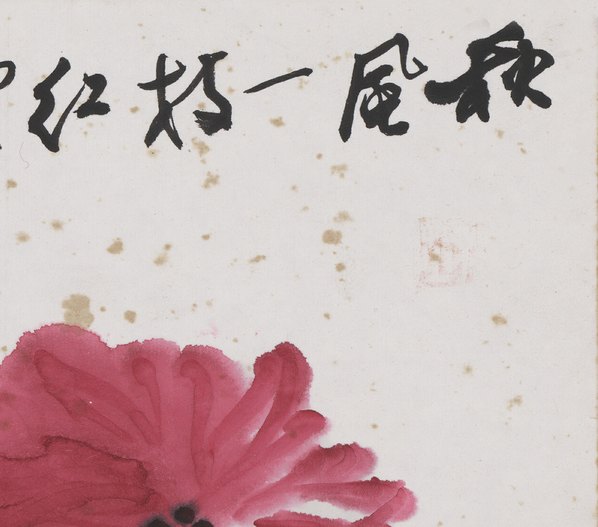 秋風一枝紅